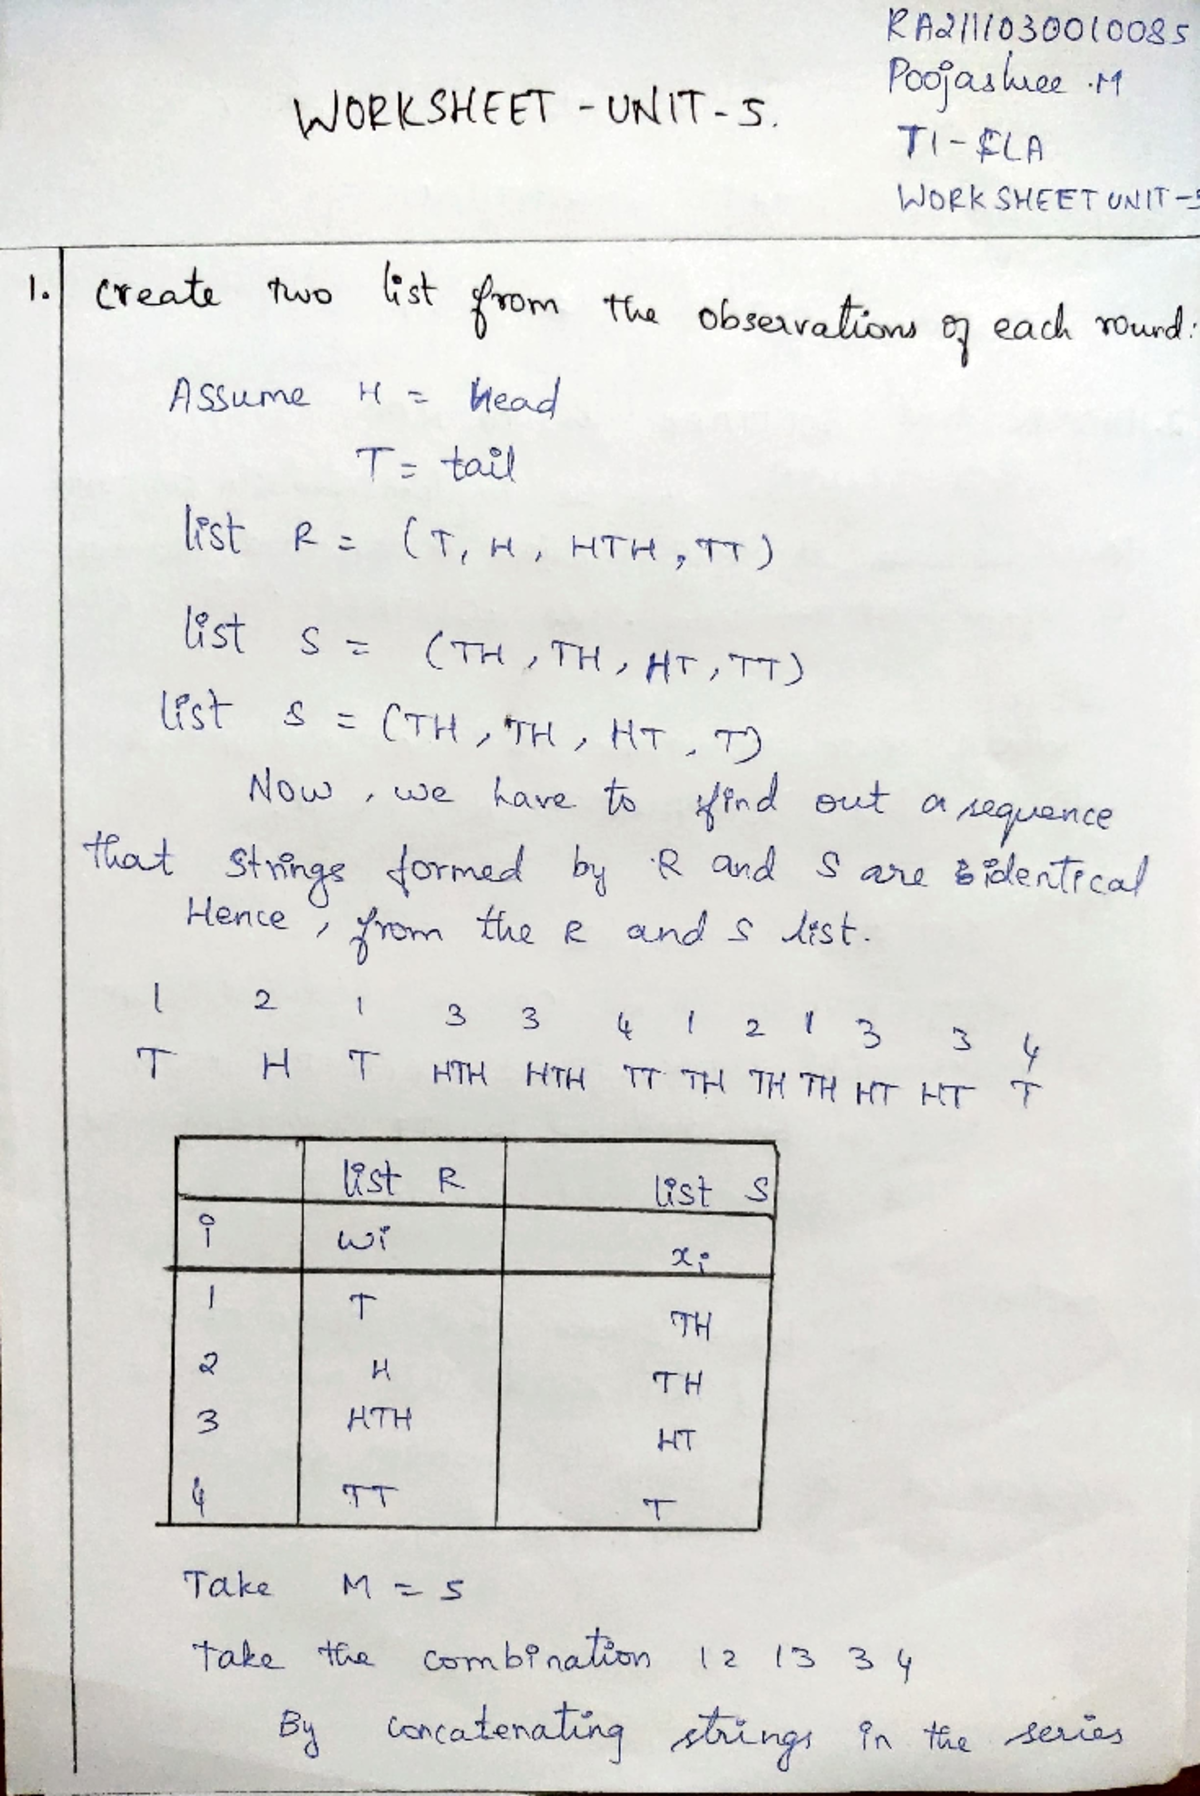 RA2111030010085
Poojashree .M
T1-CLA
WORKSHEET UNIT-5
WORKSHEET - UNIT - 5.
1. Create two list from the observations of each round:
Assume H = Head
T = tail
list R = (T, H, HTH, TT)
list S = (TH, TH, HT, TT)
list S = (TH, TH, HT, T)
Now, we have to find out a sequence
that strings formed by R and S are identical
Hence, from the R and S list.
1 2 1 3 3 4 1 2 1 3 3 4
T H T HTH HTH TT TH TH TH HT HT T
list R list S
i wi xi
1 T TH
2 H TH
3 HTH HT
4 TT T
Take M = 5
Take the combination 12 13 3 4
By concatenating strings in the series